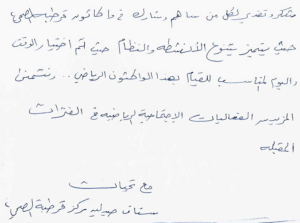 شكر وتقدير لكل من ساهم وشارك في ماكاثون قرطبة الصحي
حيث يتميز بتنوع الأنشطة والنظام حيث تم اختيار الوقت
واليوم المناسب للقيام بهذا الواكثون الرياضي .. ونتمنى
المزيد من الفعاليات الاجتماعية الرياضية في الفترات
المقبلة
مع تحيات
ستاف صيدلية مركز قرطبة الصحي